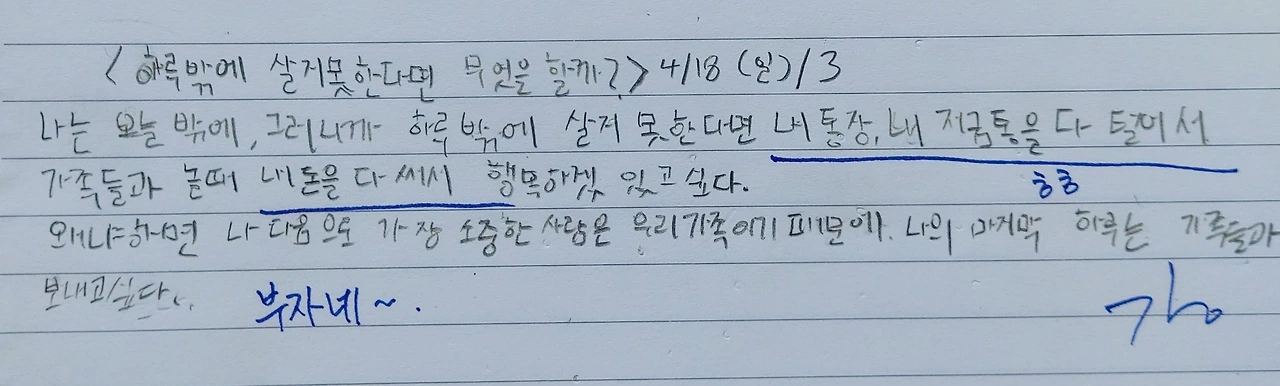 <하루밖에 살지못한다면 무엇을 할까?> 4/18 (일)/3
나는 오늘 밖에, 그러니까 하루 밖에 살지 못한다면 내 통장, 내 저금통을 다 털어서
가족들과 놀때 내 돈을 다 써서 행복하겟 있고 싶다.
ㅎㅎ
왜냐하면 나 다음으로 가장 소중한 사람은 우리가족이기 때문에. 나의 마지막 하루는 가족들과
보내고싶다..
부자네~.